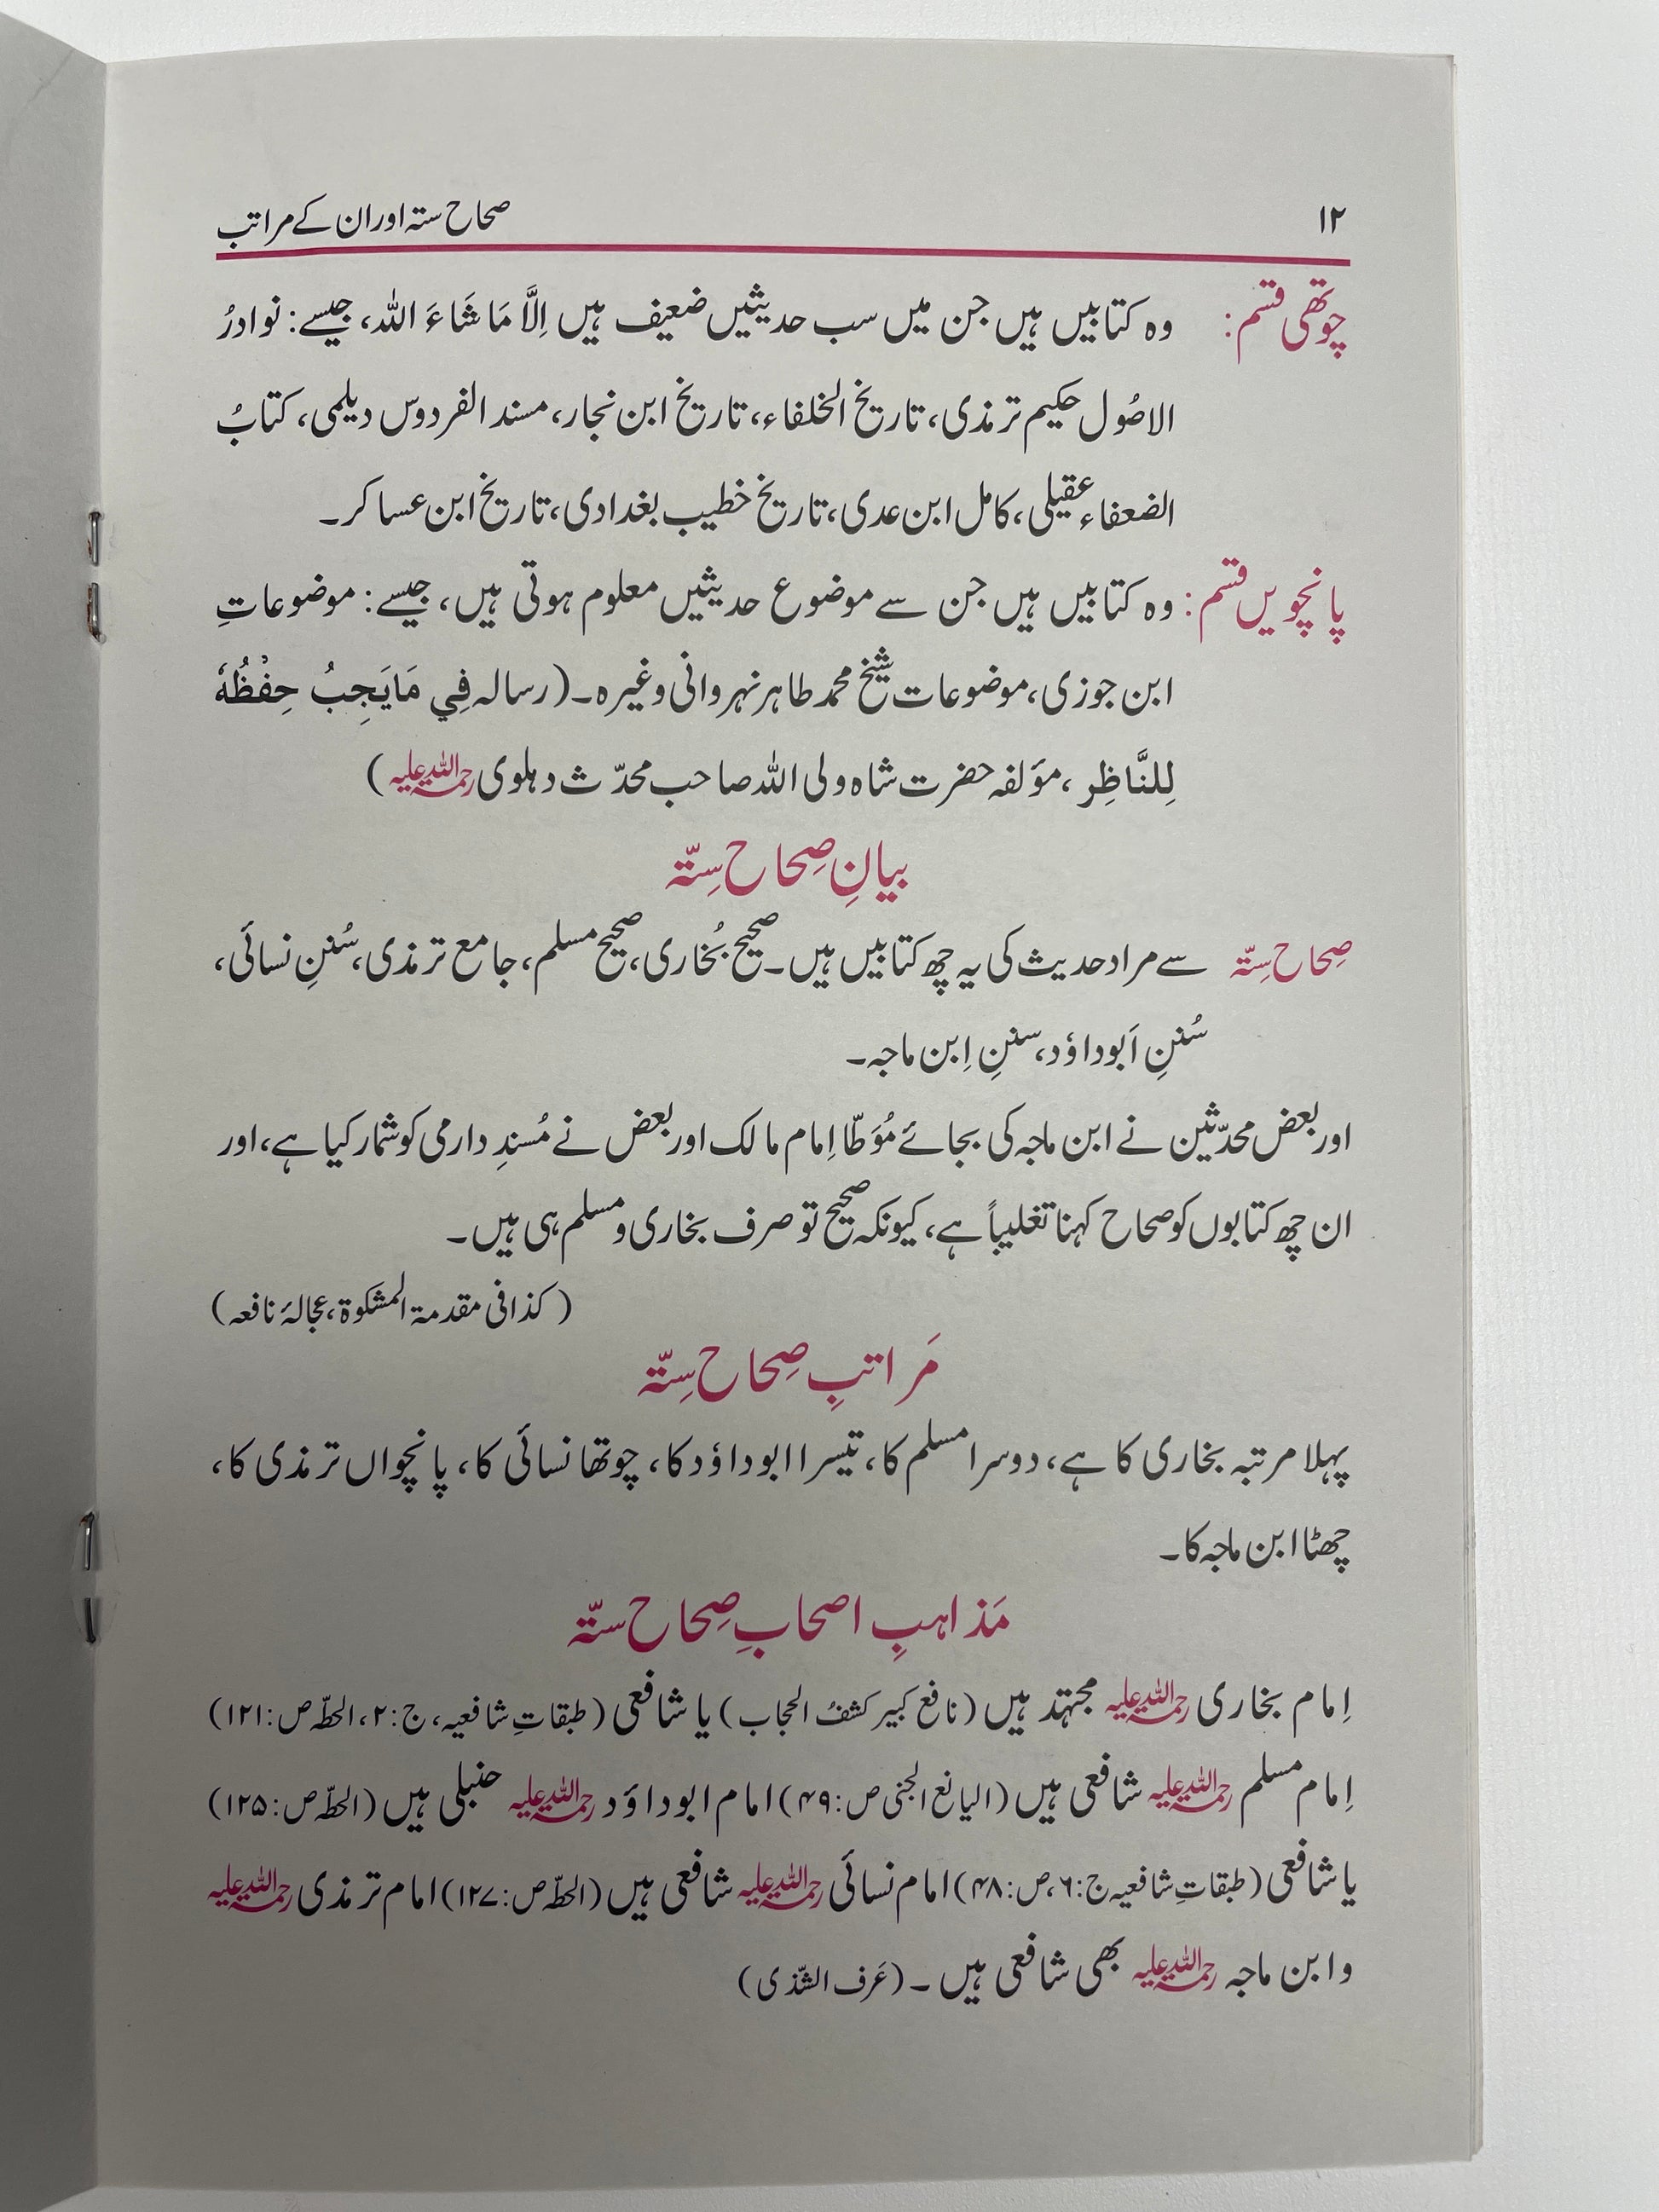 ۱۲ صحاح ستہ اور ان کے مراتب
چوتھی قسم: وہ کتابیں ہیں جن میں سب حدیثیں ضعیف ہیں اِلَّا مَا شَاءَ اللہ، جیسے: نوادرُ
الاصُول حکیم ترمذی، تاریخ الخلفاء، تاریخ ابن نجار، مسند الفردوس دیلمی، کتابُ
الضعفاء عقیلی، کامل ابن عدی، تاریخ خطیب بغدادی، تاریخ ابن عساکر۔
پانچویں قسم: وہ کتابیں ہیں جن سے موضوع حدیثیں معلوم ہوتی ہیں، جیسے: موضوعاتِ
ابن جوزی، موضوعات شیخ محمد طاہر نہروانی وغیرہ۔ (رسالہ فِي مَا يَجِبُ حِفْظُهٗ
لِلنَّاظِرِ، مؤلفہ حضرت شاہ ولی اللہ صاحب محدّث دہلوی رحمۃ اللہ علیہ)
بیانِ صِحاح سِتّہ
صِحاح سِتّہ سے مراد حدیث کی یہ چھ کتابیں ہیں۔ صحیح بُخاری، صحیح مسلم، جامع ترمذی، سُننِ نسائی،
سُننِ اَبوداؤد، سننِ اِبن ماجہ۔
اور بعض محدّثین نے ابن ماجہ کی بجائے مُوَطّا اِمام مالک اور بعض نے مُسندِ دارمی کو شمار کیا ہے، اور
ان چھ کتابوں کو صحاح کہنا تغلیباً ہے، کیونکہ صحیح تو صرف بخاری و مسلم ہی ہیں۔
(کذا فی مقدمۃ المشکوۃ، عجالۂ نافعہ)
مَراتبِ صِحاح سِتّہ
پہلا مرتبہ بخاری کا ہے، دوسرا مسلم کا، تیسرا ابوداؤد کا، چوتھا نسائی کا، پانچواں ترمذی کا،
چھٹا ابن ماجہ کا۔
مَذاہبِ اصحابِ صِحاح ستّہ
اِمام بخاری رحمۃ اللہ علیہ مجتہد ہیں (نافع کبیر کشفُ الحجاب) یا شافعی (طبقاتِ شافعیہ، ج:۲، الحطّہ ص:۱۲۱)
اِمام مسلم رحمۃ اللہ علیہ شافعی ہیں (الیانع الجنی ص:۴۹) امام ابوداؤد رحمۃ اللہ علیہ حنبلی ہیں (الحطّہ ص:۱۲۵)
یا شافعی (طبقاتِ شافعیہ ج:۶، ص:۴۸) امام نسائی رحمۃ اللہ علیہ شافعی ہیں (الحطّہ ص:۱۲۷) امام ترمذی رحمۃ اللہ علیہ
وابن ماجہ رحمۃ اللہ علیہ بھی شافعی ہیں۔ (عَرف الشّذی)